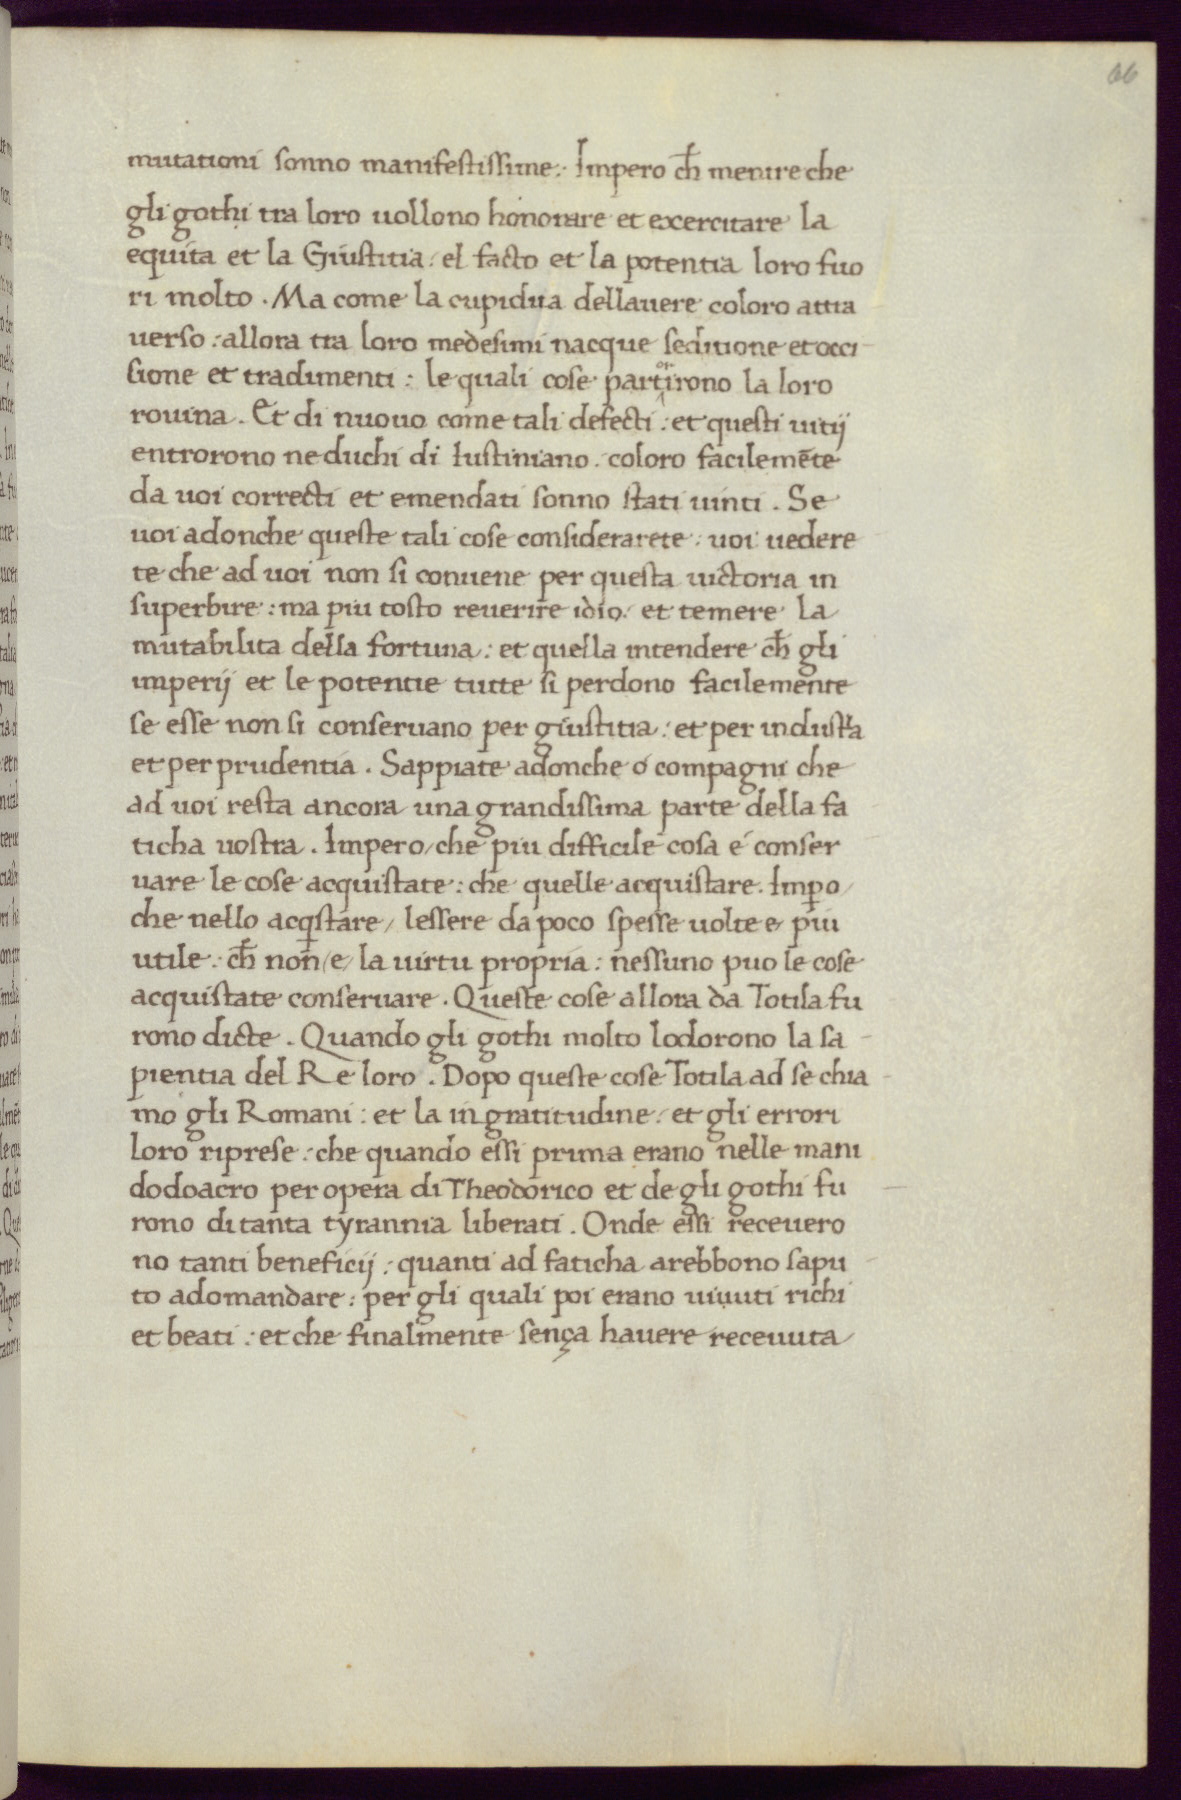 66
mutationi sonno manifestissime : Impero ch̄ mentre che
gli gothi tra loro uollono honorare et exercitare la
equita et la Giustitia : el facto et la potentia loro fuo
ri molto . Ma come la cupidita dellauere coloro attra
uerso : allora tra loro medesimi nacque seditione et occi-
sione et tradimenti : le quali cose partorirono la loro
rouina . Et di nuouo come tali defecti : et questi uitij
entrorono ne duchi di Iustiniano . coloro facilemēte
da uoi correcti et emendati sonno stati uinti . Se
uoi adonche queste tali cose considerarete : uoi uedere
te che ad uoi non si conuene per questa uictoria in
superbire : ma piu tosto reuerire idio : et temere la
mutabilita della fortuna : et quella intendere ch̄ gli
imperij et le potentie tutte si perdono facilemente
se esse non si conseruano per giustitia : et per industia
et per prudentia . Sappiate adonche o compagni che
ad uoi resta ancora una grandissima parte della fa
ticha uostra . Impero/che piu difficile cosa é conser
uare le cose acquistate : che quelle acquistare . Imp̱o/
che nello acq̄stare / lessere da poco spesse uolte e piu
utile : ch̄ non /e/ la uirtu propria : nessuno puo le cose
acquistate conseruare . Queste cose allora da Totila fu
rono dicte . Quando gli gothi molto lodorono la sa-
pientia del Re loro . Dopo queste cose Totila ad se chia-
mo gli Romani : et la ingratitudine : et gli errori
loro riprese : che quando essi prima erano nelle mani
dodoacro per opera di Theodorico et de gli gothi fu-
rono di tanta tyrannia liberati . Onde essi receuero
no tanti beneficij : quanti ad faticha arebbono sapu-
to adomandare : per gli quali poi erano uiuuti richi
et beati : et che finalmente sença hauere receuuta